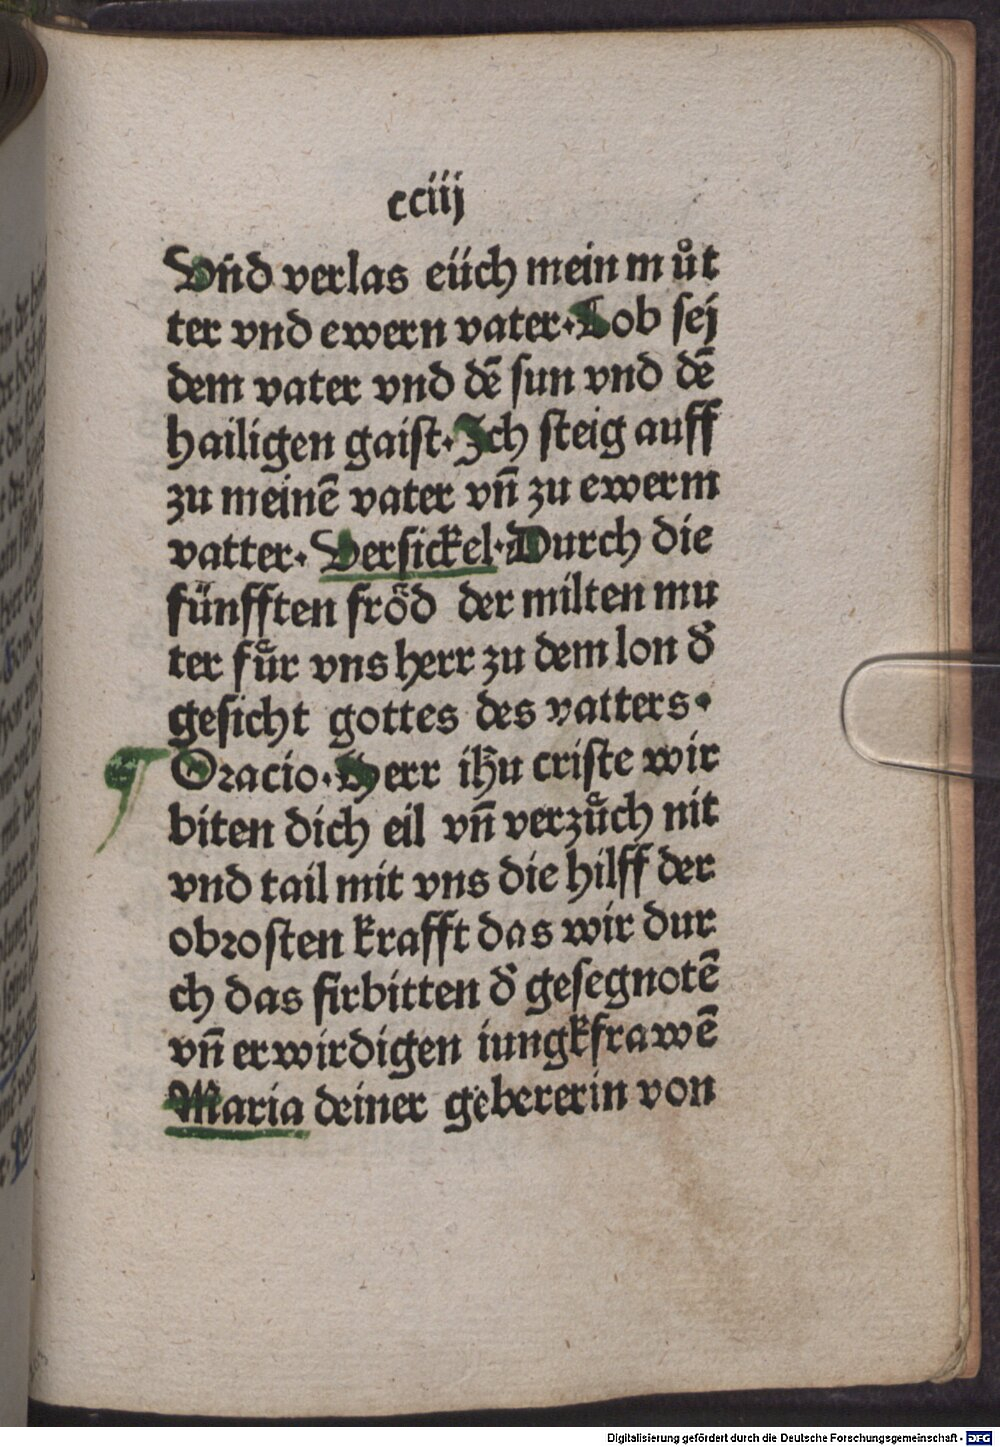 cciij
Vñd verlas eüch mein můt
ter vnd ewern vater·Lob sej
dem vater vnd dē sun vnd dē
hailigen gaist·Ich steig auff
zu meinē vater vn̄ zu ewerm
vatter· Versickel·Durch die
fünfften frőd der milten mu
ter fůr vns herr zu dem lon d̛
gesicht gottes des vatters·
Oracio·Herr ihu criste wir
biten dich eil vn̄ verzůch nit
vnd tail mit vns die hilff der
obrosten krafft das wir dur
ch das firbitten d̛ gesegnotē
vn̄ erwirdigen iungkfrawē
Maria deiner gebererin von
Digitalisierung gefördert durch die Deutsche Forschungsgemeinschaft - DFG